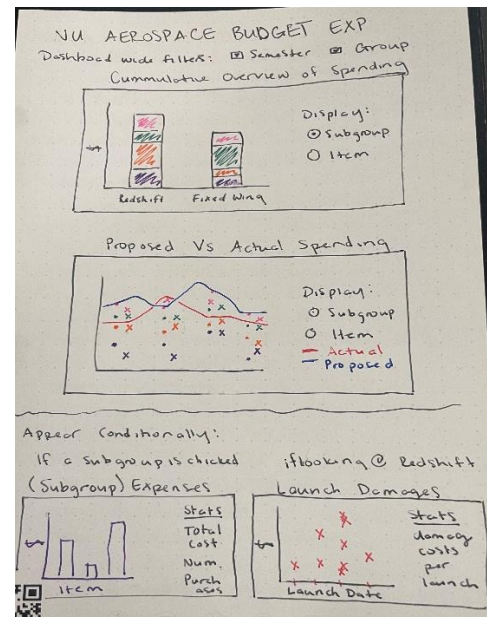 VU AEROSPACE BUDGET EXP
Dashboad wide filters: Semester Group
Cummulative Overview of Spending
Display:
Subgroup
Item
$
Redshift Fixed Wing
Proposed Vs Actual Spending
Display:
Subgroup
Item
Actual
Proposed
Appear Conditionally:
If a Subgroup is clicked
(Subgroup) Expenses
$
Item
Stats
Total
Cost
Num.
Purch
ases
if looking @ Redshift
Launch Damages
$
Launch Date
Stats
damage
costs
per
launch